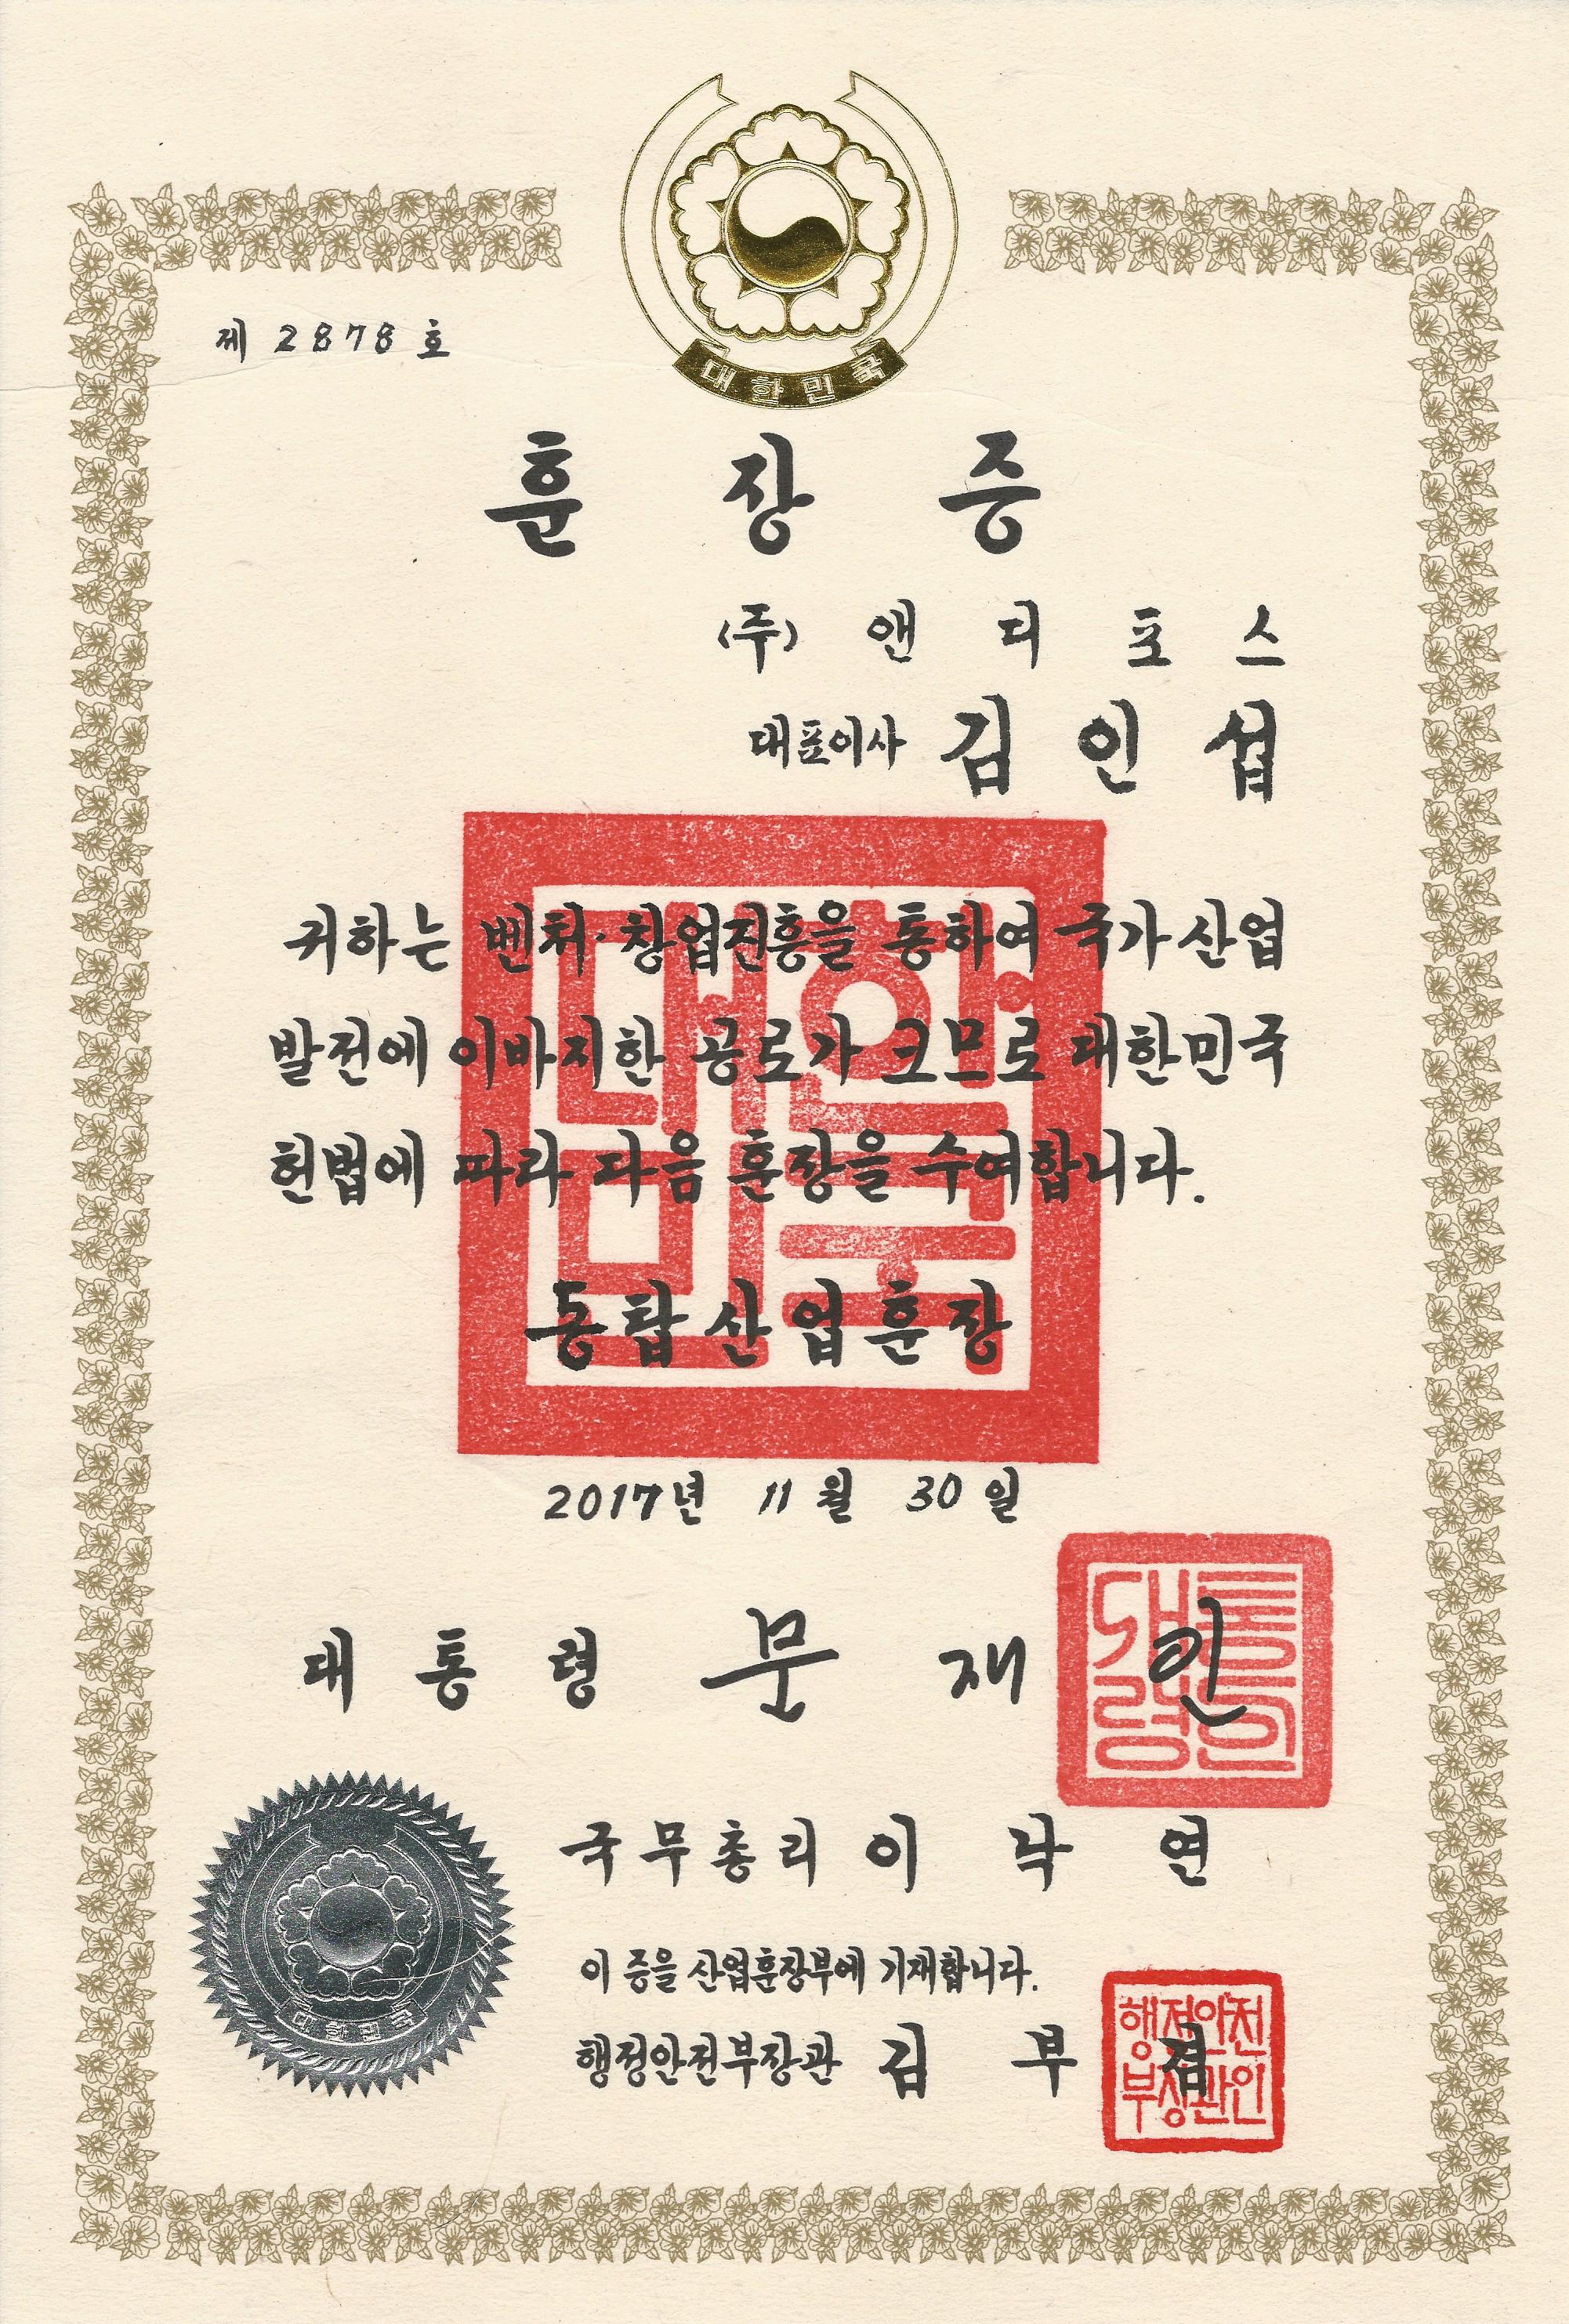 대한민국
제 2878 호
훈 장 증
(주) 앤 디 포 스
대표이사 김 인 섭
귀하는 벤처·창업진흥을 통하여 국가산업
발전에 이바지한 공로가 크므로 대한민국
헌법에 따라 다음 훈장을 수여합니다.
대한민국
동탑산업훈장
2017년 11월 30일
대 통 령 문 재 인
대통령의인
국무총리 이 낙 연
이 증을 산업훈장부에 기재합니다.
행정안전부장관 김 부 겸
행정안전부장관인
대한민국